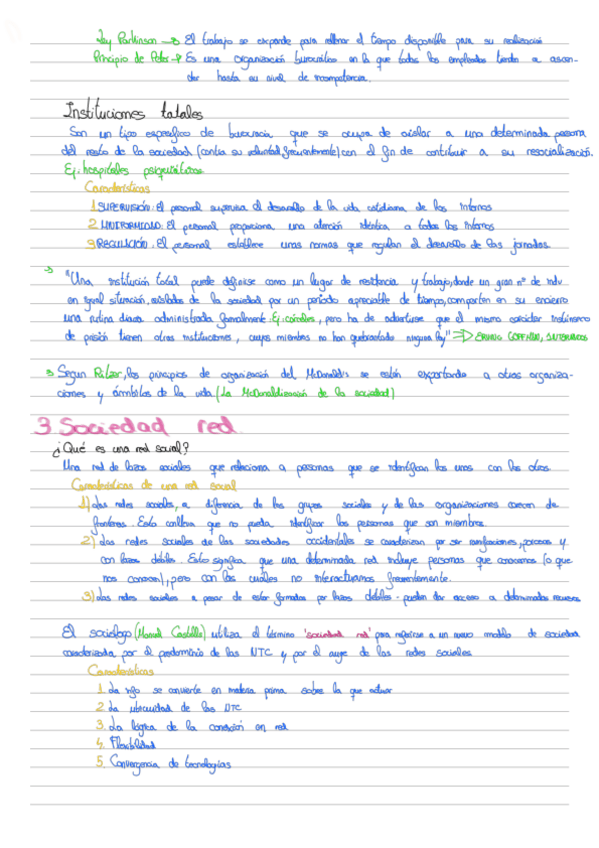 Ley Parkinson → El trabajo se expande para rellenar el tiempo disponible para su realización
Principio de Peter → Es una organización burocrática en la que todos los empleados tienden a ascen-
der hasta su nivel de incompetencia.
Instituciones totales
Son un tipo específico de burocracia que se ocupa de aislar a una determinada persona
del resto de la sociedad (contra su voluntad frecuentemente) con el fin de contribuir a su resocialización.
Ej: hospitales psiquiátricos
Características
1. SUPERVISIÓN: El personal supervisa el desarrollo de la vida cotidiana de los internos
2. UNIFORMIDAD: El personal proporciona una atención idéntica a todos los internos
3. REGULACIÓN: El personal establece unas normas que regulan el desarrollo de las jornadas.
→ "Una institución total puede definirse como un lugar de residencia y trabajo, donde un gran nº de indv
en igual situación, aislados de la sociedad por un período apreciable de tiempo, comparten en su encierro
una rutina diaria administrada formalmente. Ej: cárceles, pero ha de advertirse que el mismo carácter intrínseco
de prisión tienen otras instituciones, cuyos miembros no han quebrantado ninguna ley" ⇒ ERVING GOFFMAN, INTERNADOS
→ Segun Ritzer, los principios de organización del McDonald's se están exportando a otras organiza-
ciones y ámbitos de la vida (La McDonaldización de la sociedad)
3 Sociedad red
¿Qué es una red social?
Una red de lazos sociales que relaciona a personas que se identifican los unos con los otros.
Características de una red social
1) Las redes sociales, a diferencia de los grupos sociales y de las organizaciones carecen de
fronteras. Esto conlleva que no pueda identificar las personas que son miembros.
2) Las redes sociales de las sociedades occidentales se caracterizan por ser ramificaciones, porosas y
con lazos débiles. Esto significa que una determinada red incluye personas que conocemos (o que
nos conocen), pero con las cuales no interactuamos frecuentemente.
3) Las redes sociales a pesar de estar formadas por lazos débiles - pueden dar acceso a determinados recursos
El sociólogo (Manuel Castells) utiliza el término 'sociedad red' para referirse a un nuevo modelo de sociedad
caracterizada por el predominio de las NTC y por el auge de las redes sociales.
Características
1. La info se convierte en materia prima sobre la que actuar
2. La ubicuidad de las NTC
3. La lógica de la conexión en red
4. Flexibilidad
5. Convergencia de tecnologías